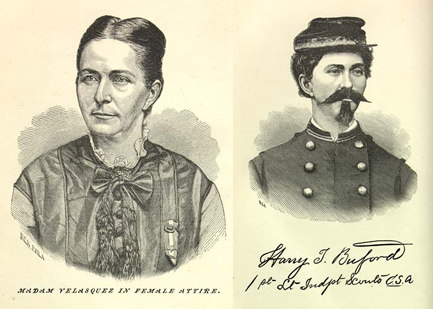 MADAM VELASQUEZ IN FEMALE ATTIRE.
Harry T. Buford
1st Lt Indpt Scouts C.S.A